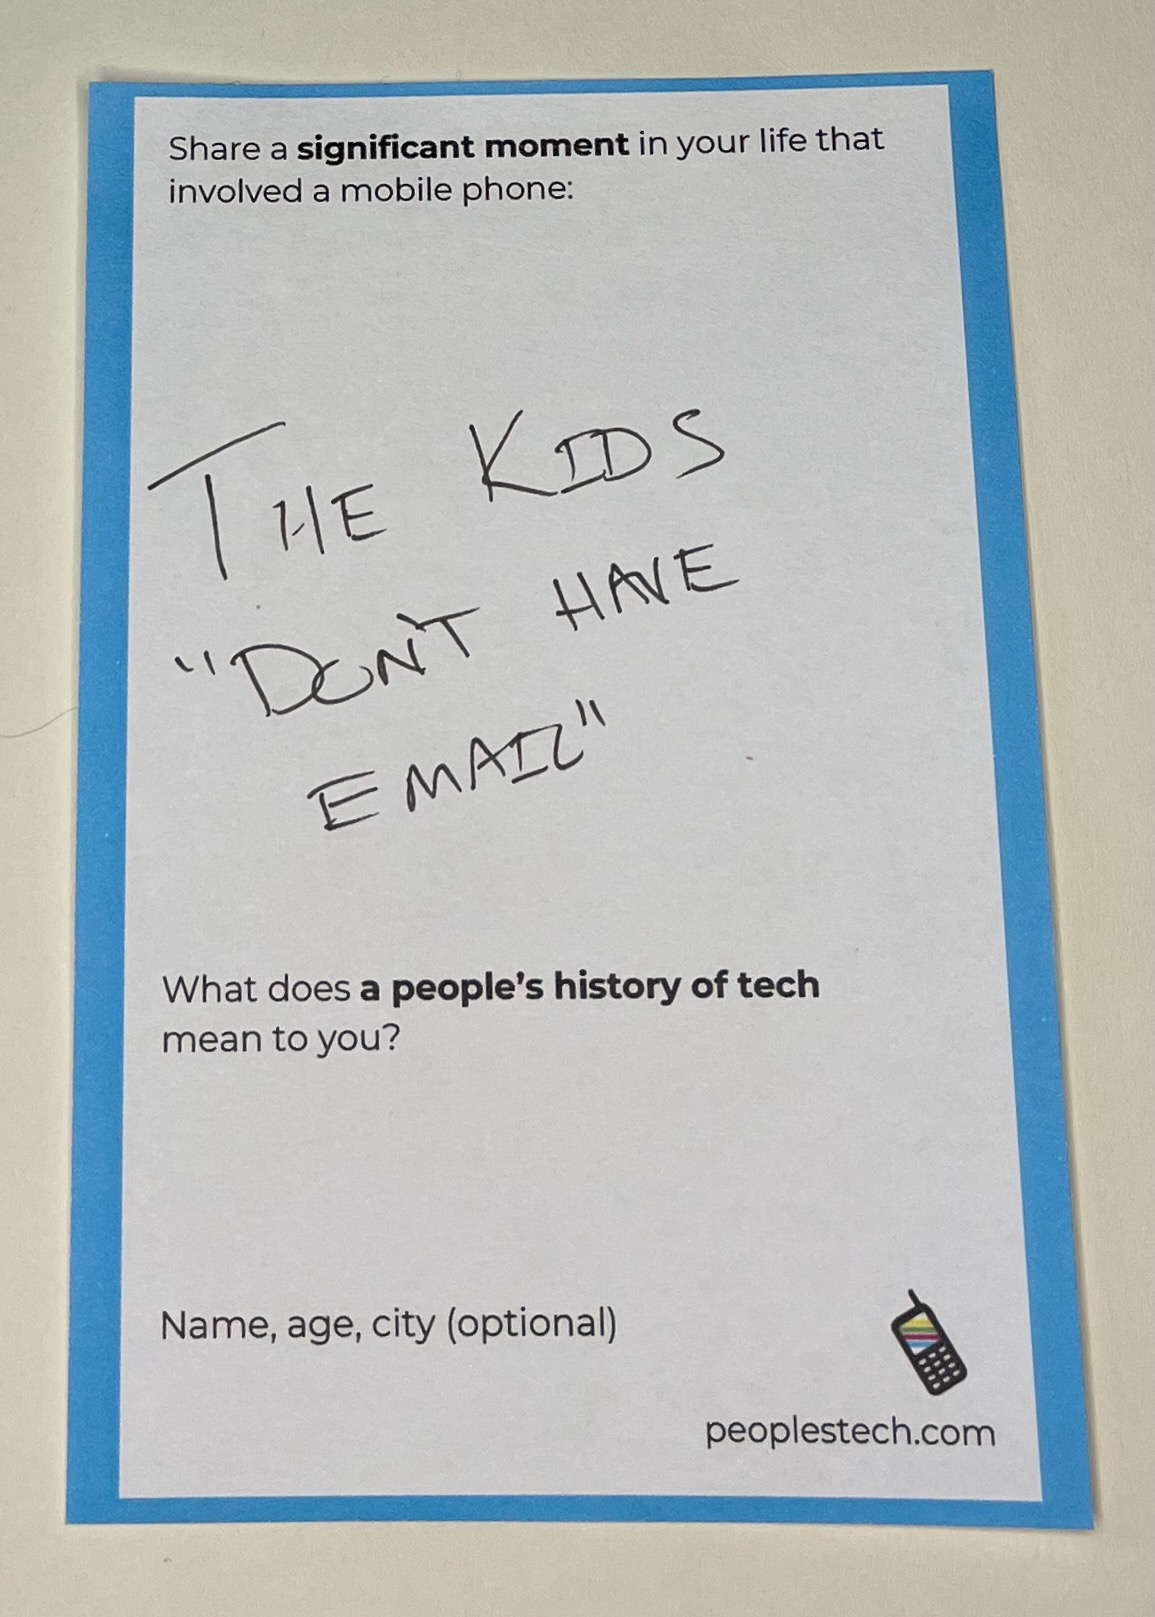 Share a significant moment in your life that
involved a mobile phone:
THE KIDS
"DON'T HAVE
EMAIL"
What does a people's history of tech
mean to you?
Name, age, city (optional)
peoplestech.com